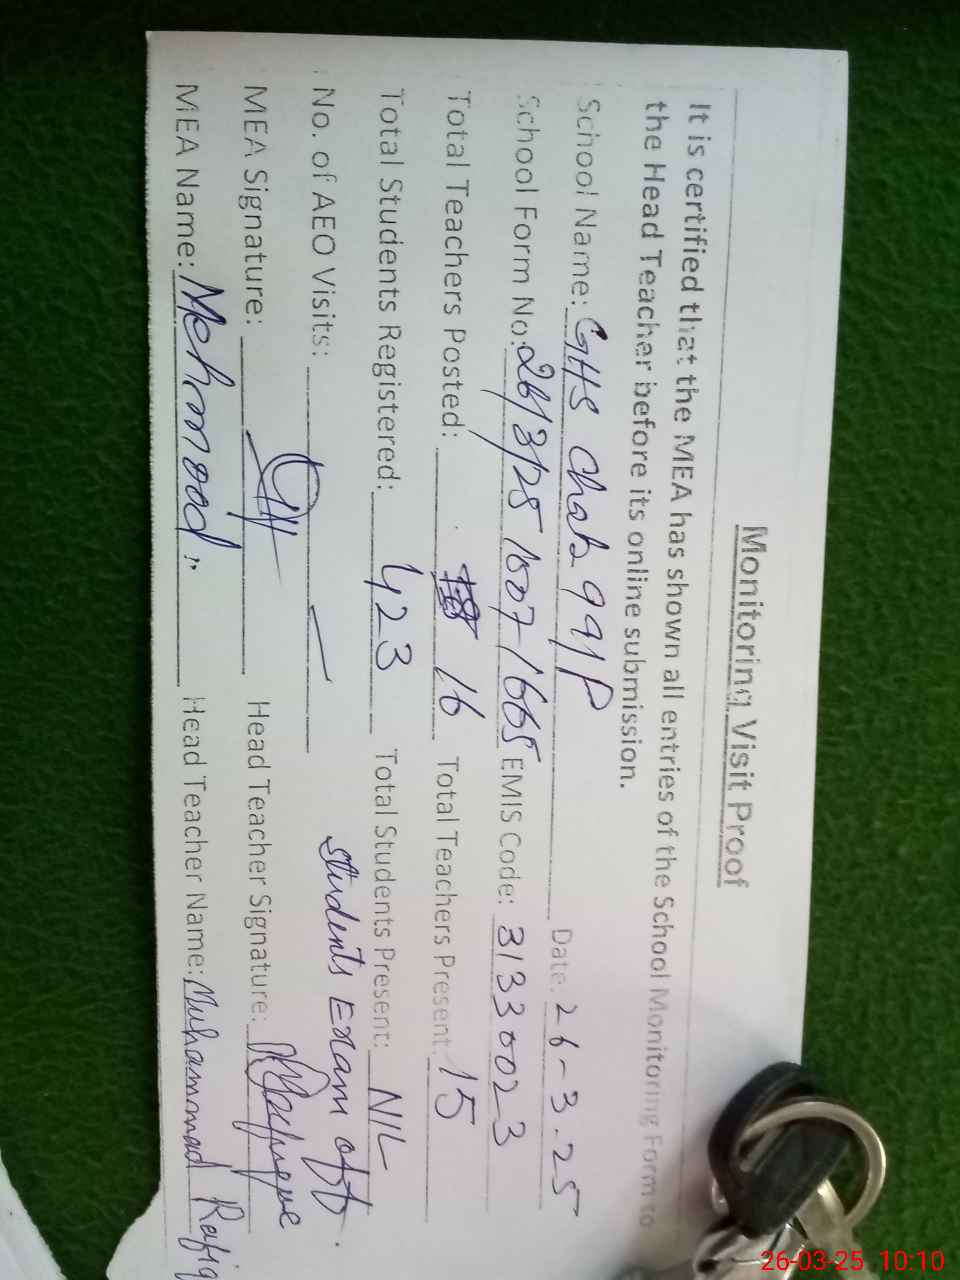 Monitoring Visit Proof
It is certified that the MEA has shown all entries of the School Monitoring Form to
the Head Teacher before its online submission.
School Name: GHS Chak 99/P Date: 26-3-25
School Form No: 26/3/25 1007-1665 EMIS Code: 31330023
Total Teachers Posted: 16 Total Teachers Present: 15
Total Students Registered: 423 Total Students Present: NIL
No. of AEO Visits: — Students Exam off.
MEA Signature: Head Teacher Signature:
MEA Name: Mehmood. Head Teacher Name: Muhammad Rafiq
26-03-25 10:10